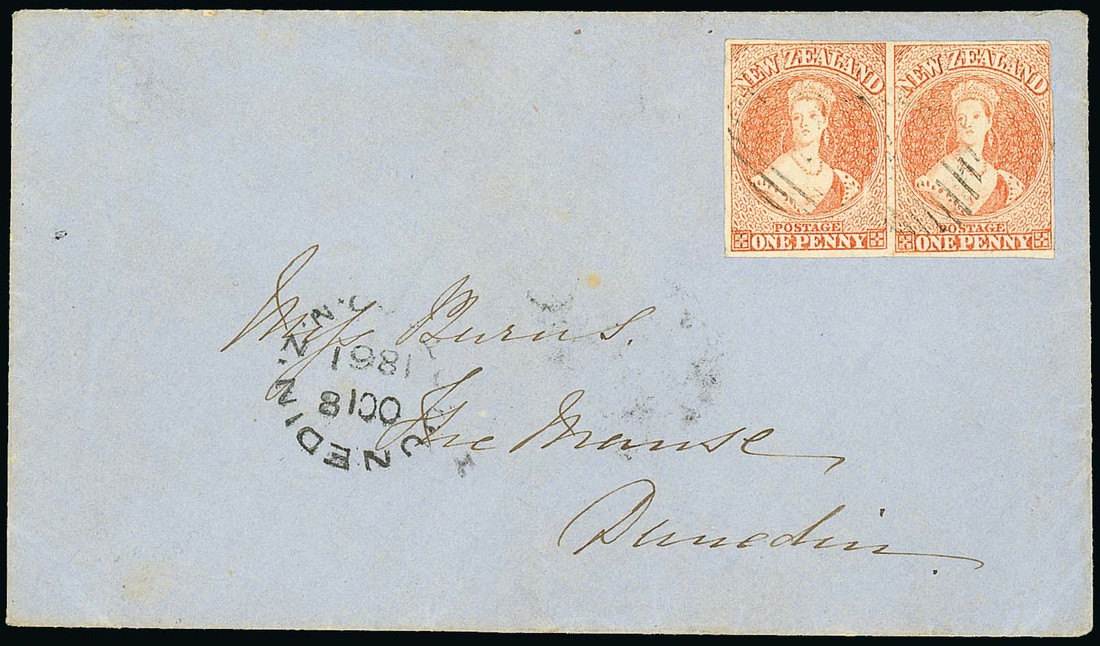 NEW ZEALAND
POSTAGE
ONE PENNY
NEW ZEALAND
POSTAGE
ONE PENNY
Miss Burns.
The Manse
Dunedin
DUNEDIN . N.Z.
OC18
1861